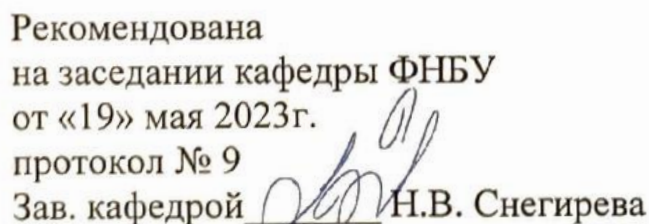 Рекомендована
на заседании кафедры ФНБУ
от «19» мая 2023г.
протокол № 9
Зав. кафедрой Н.В. Снегирева